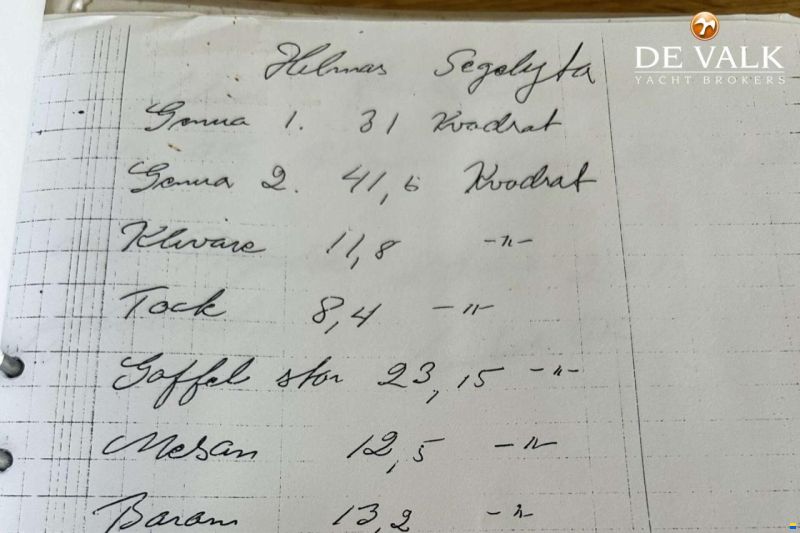 DE VALK
YACHT BROKERS
Helmas Segelyta
Genua 1. 31 Kvadrat
Genua 2. 41,6 Kvadrat
Klivare 11,8 -"-
Fock 8,4 -"-
Gaffel stor 23,15 -"-
Mesan 12,5 -"-
13,2 -"-